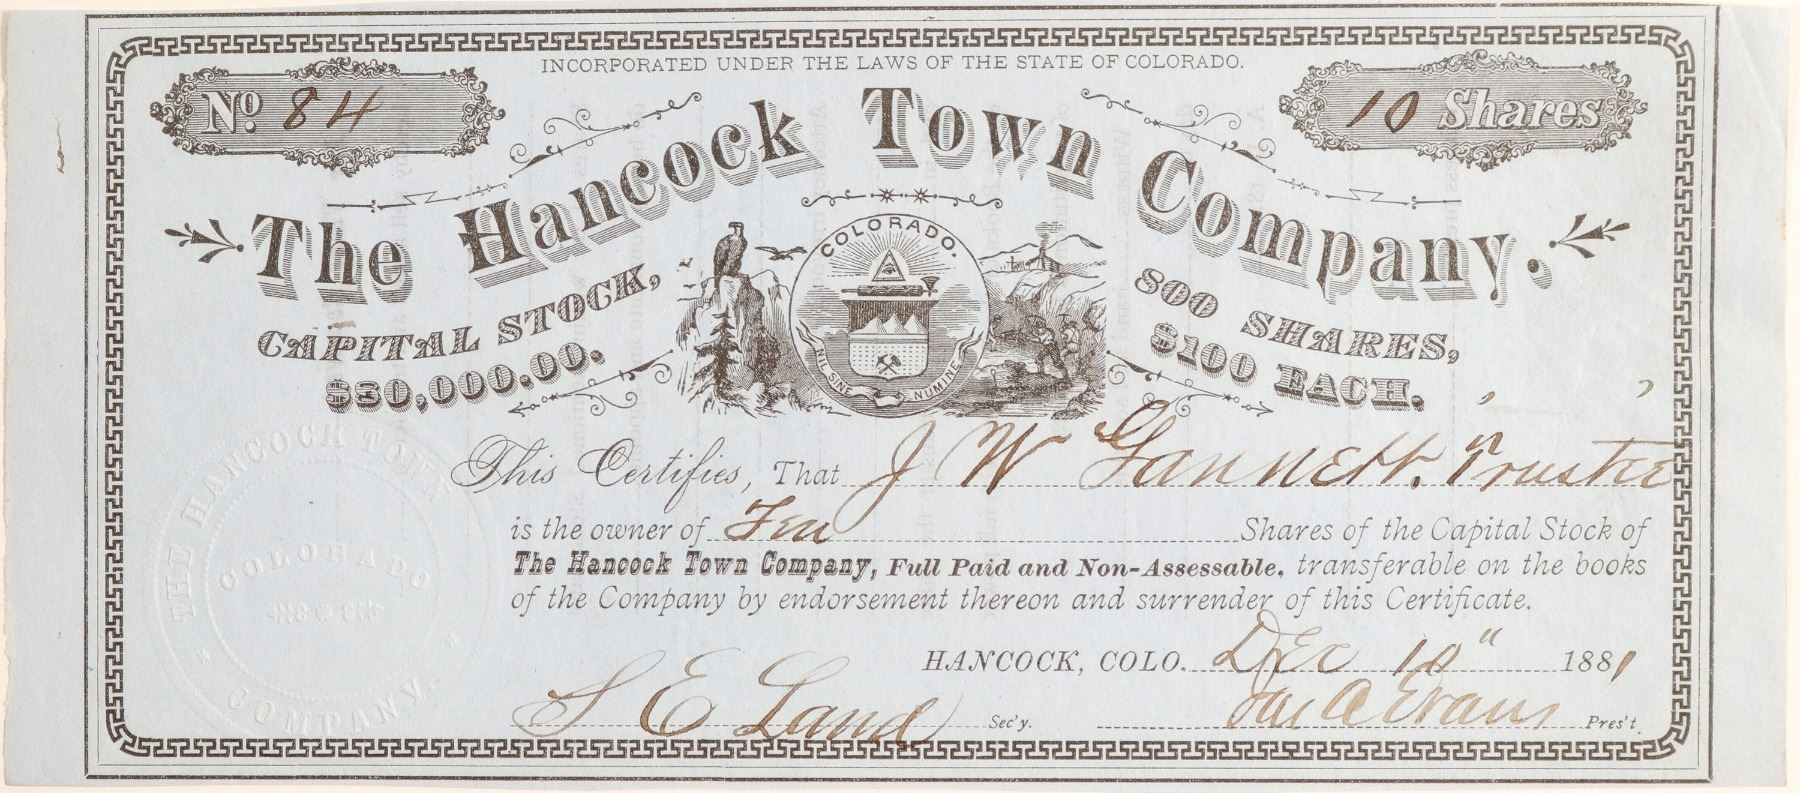 INCORPORATED UNDER THE LAWS OF THE STATE OF COLORADO.
No. 84
10 Shares
The Hancock Town Company.
CAPITAL STOCK,
$30,000.00.
COLORADO.
NIL SINE NUMINE
800 SHARES,
$100 EACH.
This Certifies, That J W Gannett. Trustee
is the owner of Ten Shares of the Capital Stock of
The Hancock Town Company, Full Paid and Non-Assessable, transferable on the books
of the Company by endorsement thereon and surrender of this Certificate.
HANCOCK, COLO. Dec 10" 1881
S E Land Sec'y. Jas A Evans Pres't.
THE HANCOCK TOWN COMPANY.
COLORADO